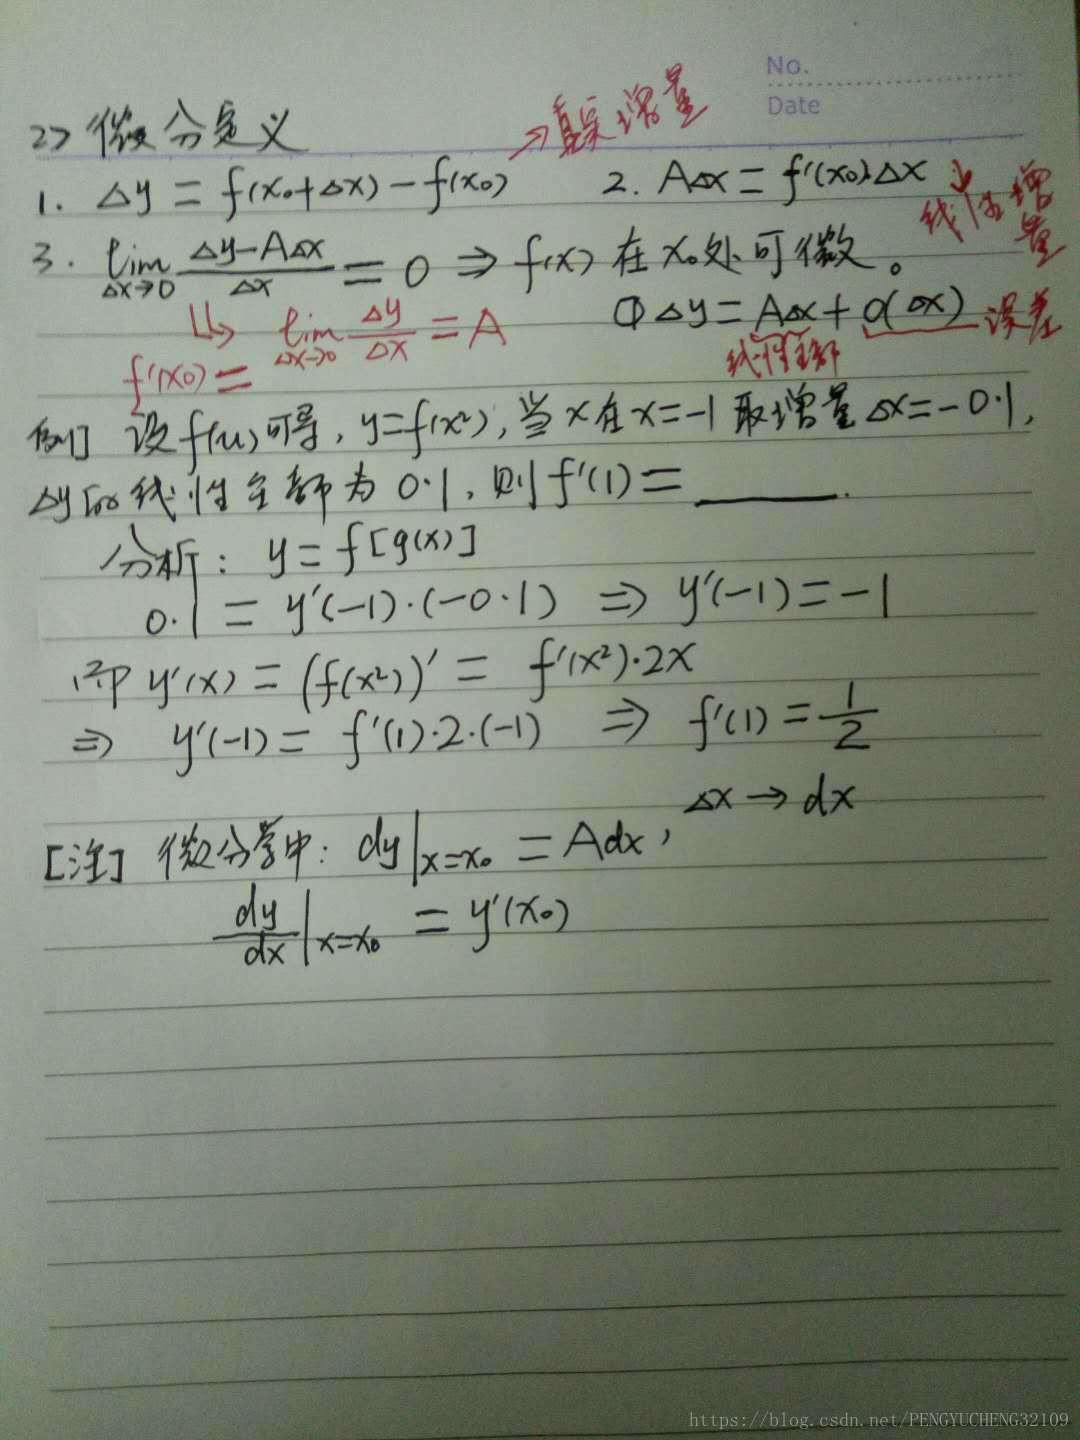 No.
Date
2> 微分定义 → 真实增量
1. Δy = f(x₀+Δx) - f(x₀) 2. AΔx = f'(x₀)Δx → 线性增量
3. lim_{Δx→0} (Δy-AΔx)/Δx = 0 ⇒ f(x) 在 x₀处可微。
↳ lim_{Δx→0} Δy/Δx = A ① Δy = AΔx + o(Δx) — 误差
f'(x₀) = 线性主部
例] 设f(u)可导, y=f(x²), 当x在x=-1取增量Δx=-0.1,
Δy的线性主部为0.1, 则f'(1)= ______.
分析: y = f[g(x)]
0.1 = y'(-1)·(-0.1) ⇒ y'(-1) = -1
即 y'(x) = (f(x²))' = f'(x²)·2x
⇒ y'(-1) = f'(1)·2·(-1) ⇒ f'(1) = 1/2
Δx → dx
[注] 微分学中: dy|x=x₀ = Adx,
dy/dx|x=x₀ = y'(x₀)
https://blog.csdn.net/PENGYUCHENG32109